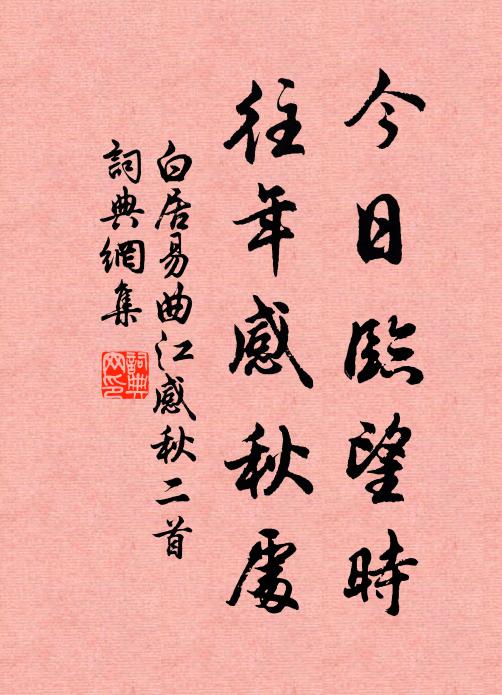 今日臨望時
往年感秋處
白居易曲江感秋二首
詞典網集
詞典網印